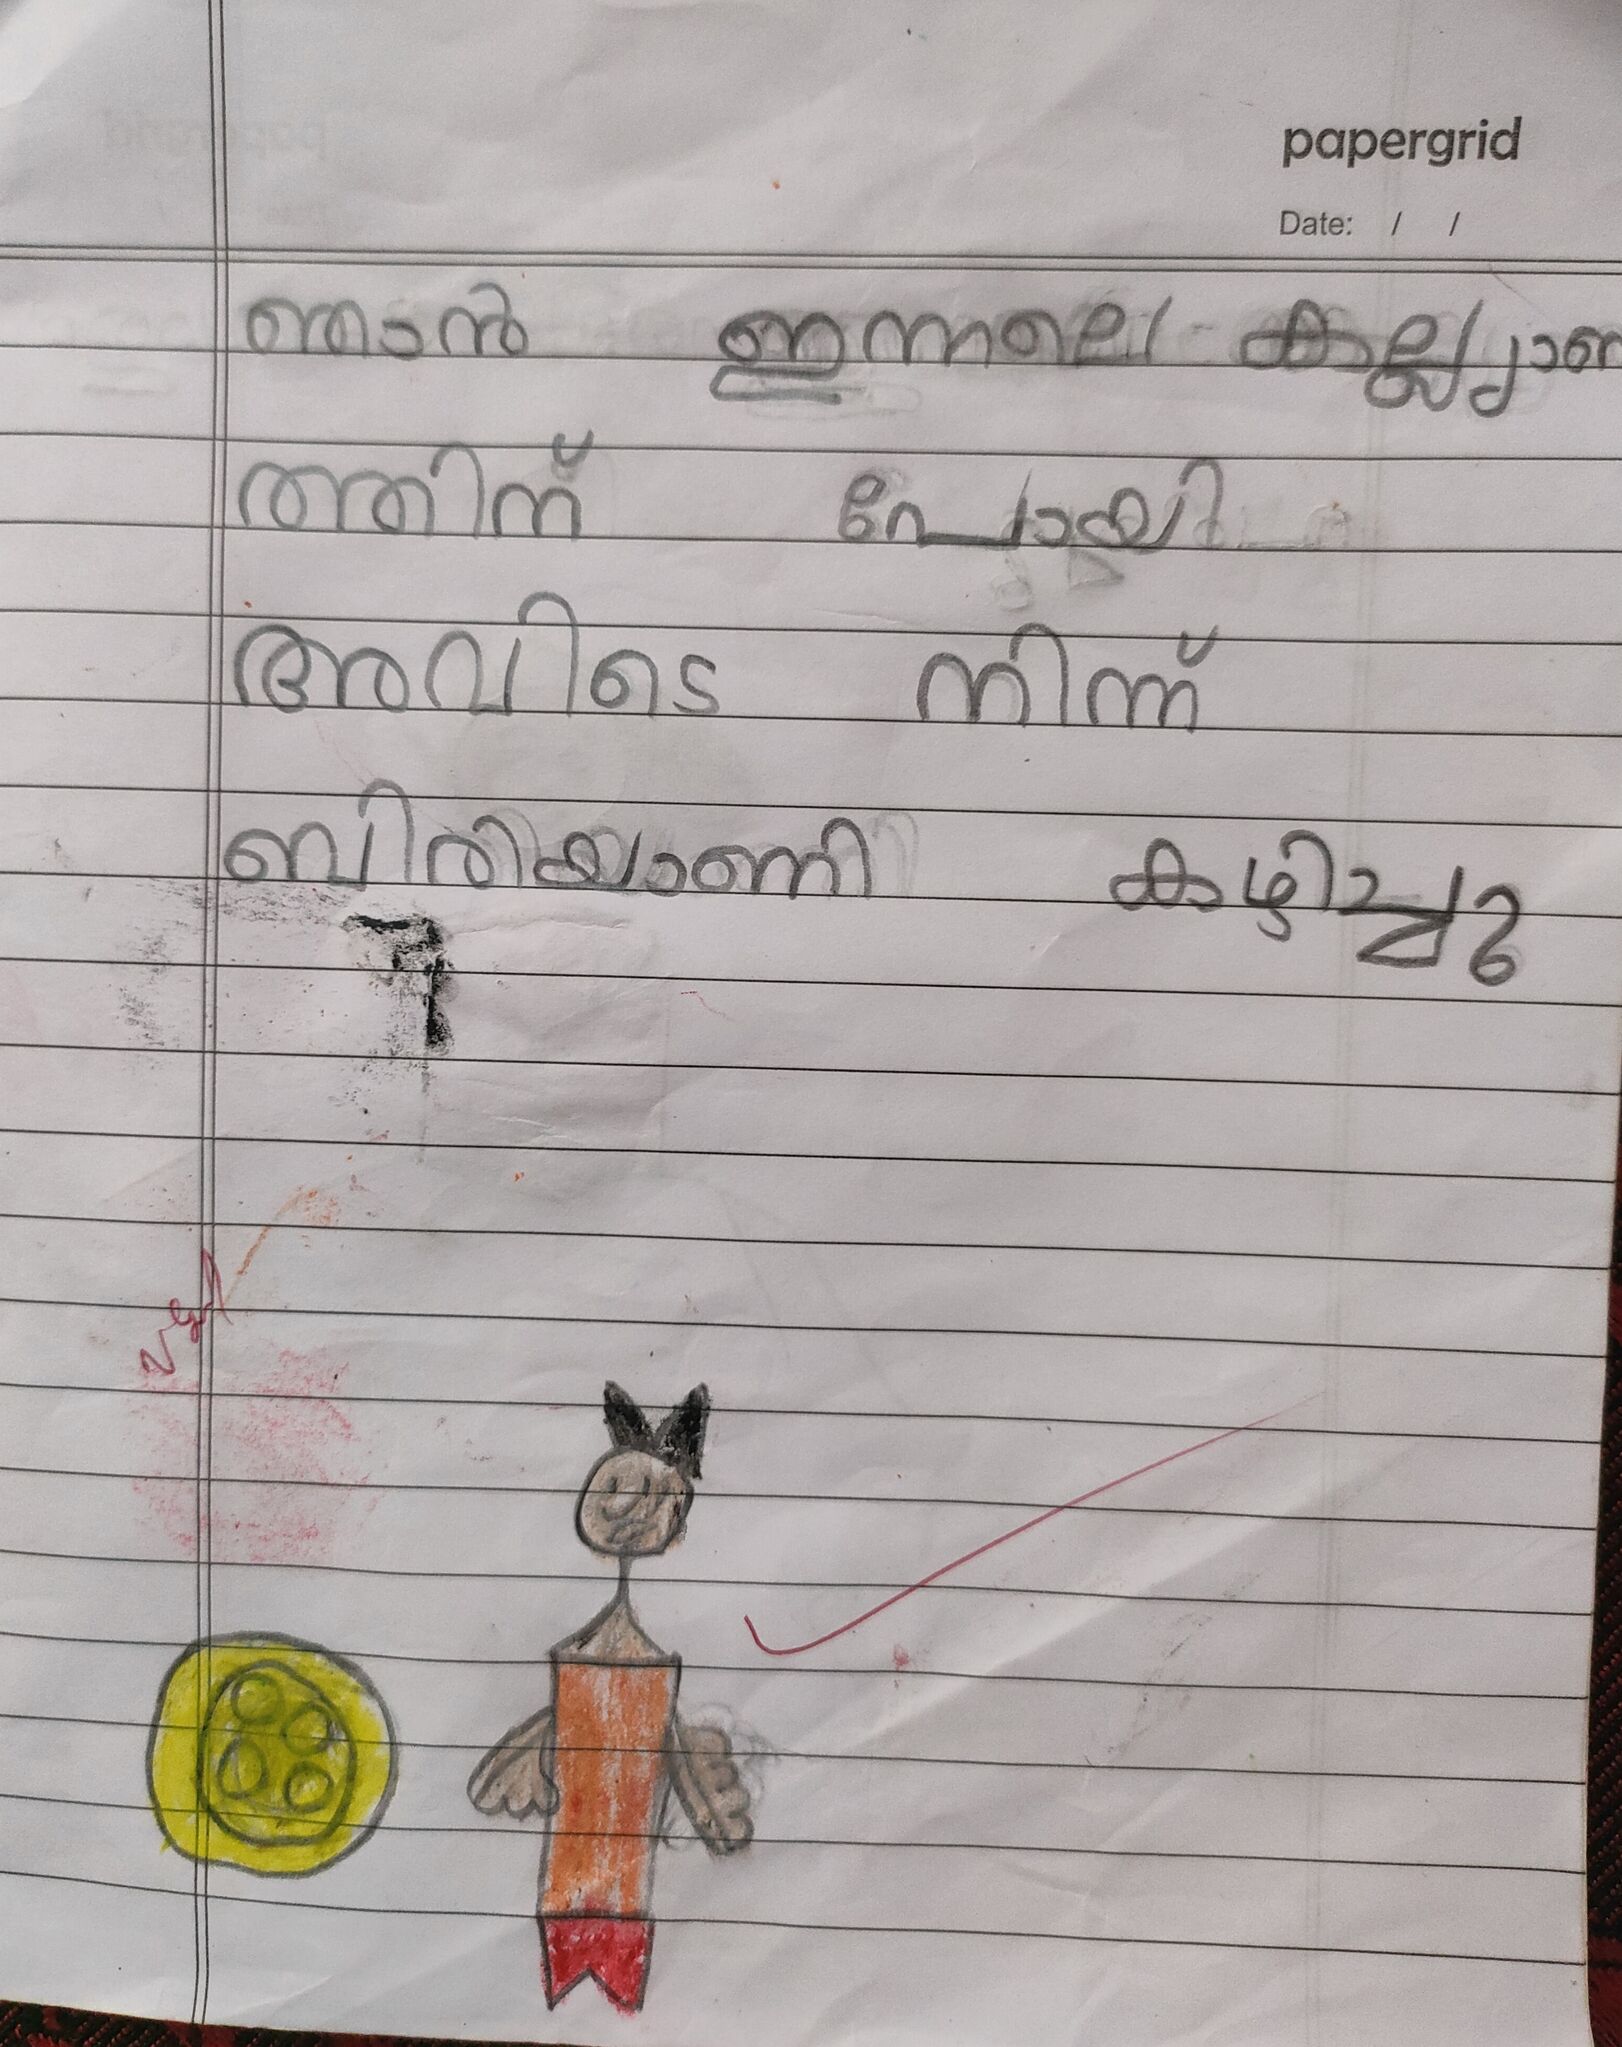 papergrid
Date: / /
ഞാൻ ഇന്നലെ കല്ല്യാണ
ത്തിന് പോയി
അവിടെ നിന്ന്
ബിരിയാണി കഴിച്ചു